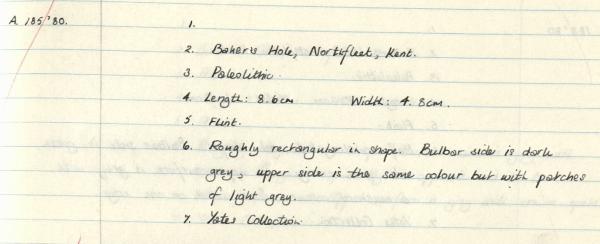 A. 185'80.
1.
2. Baker's Hole, Northfleet, Kent.
3. Paleolithic.
4. Length: 8.6cm Width: 4.8cm.
5. Flint.
6. Roughly rectangular in shape. Bulbar side is dark
grey, upper side is the same colour but with patches
of light grey.
7. Yates Collection.